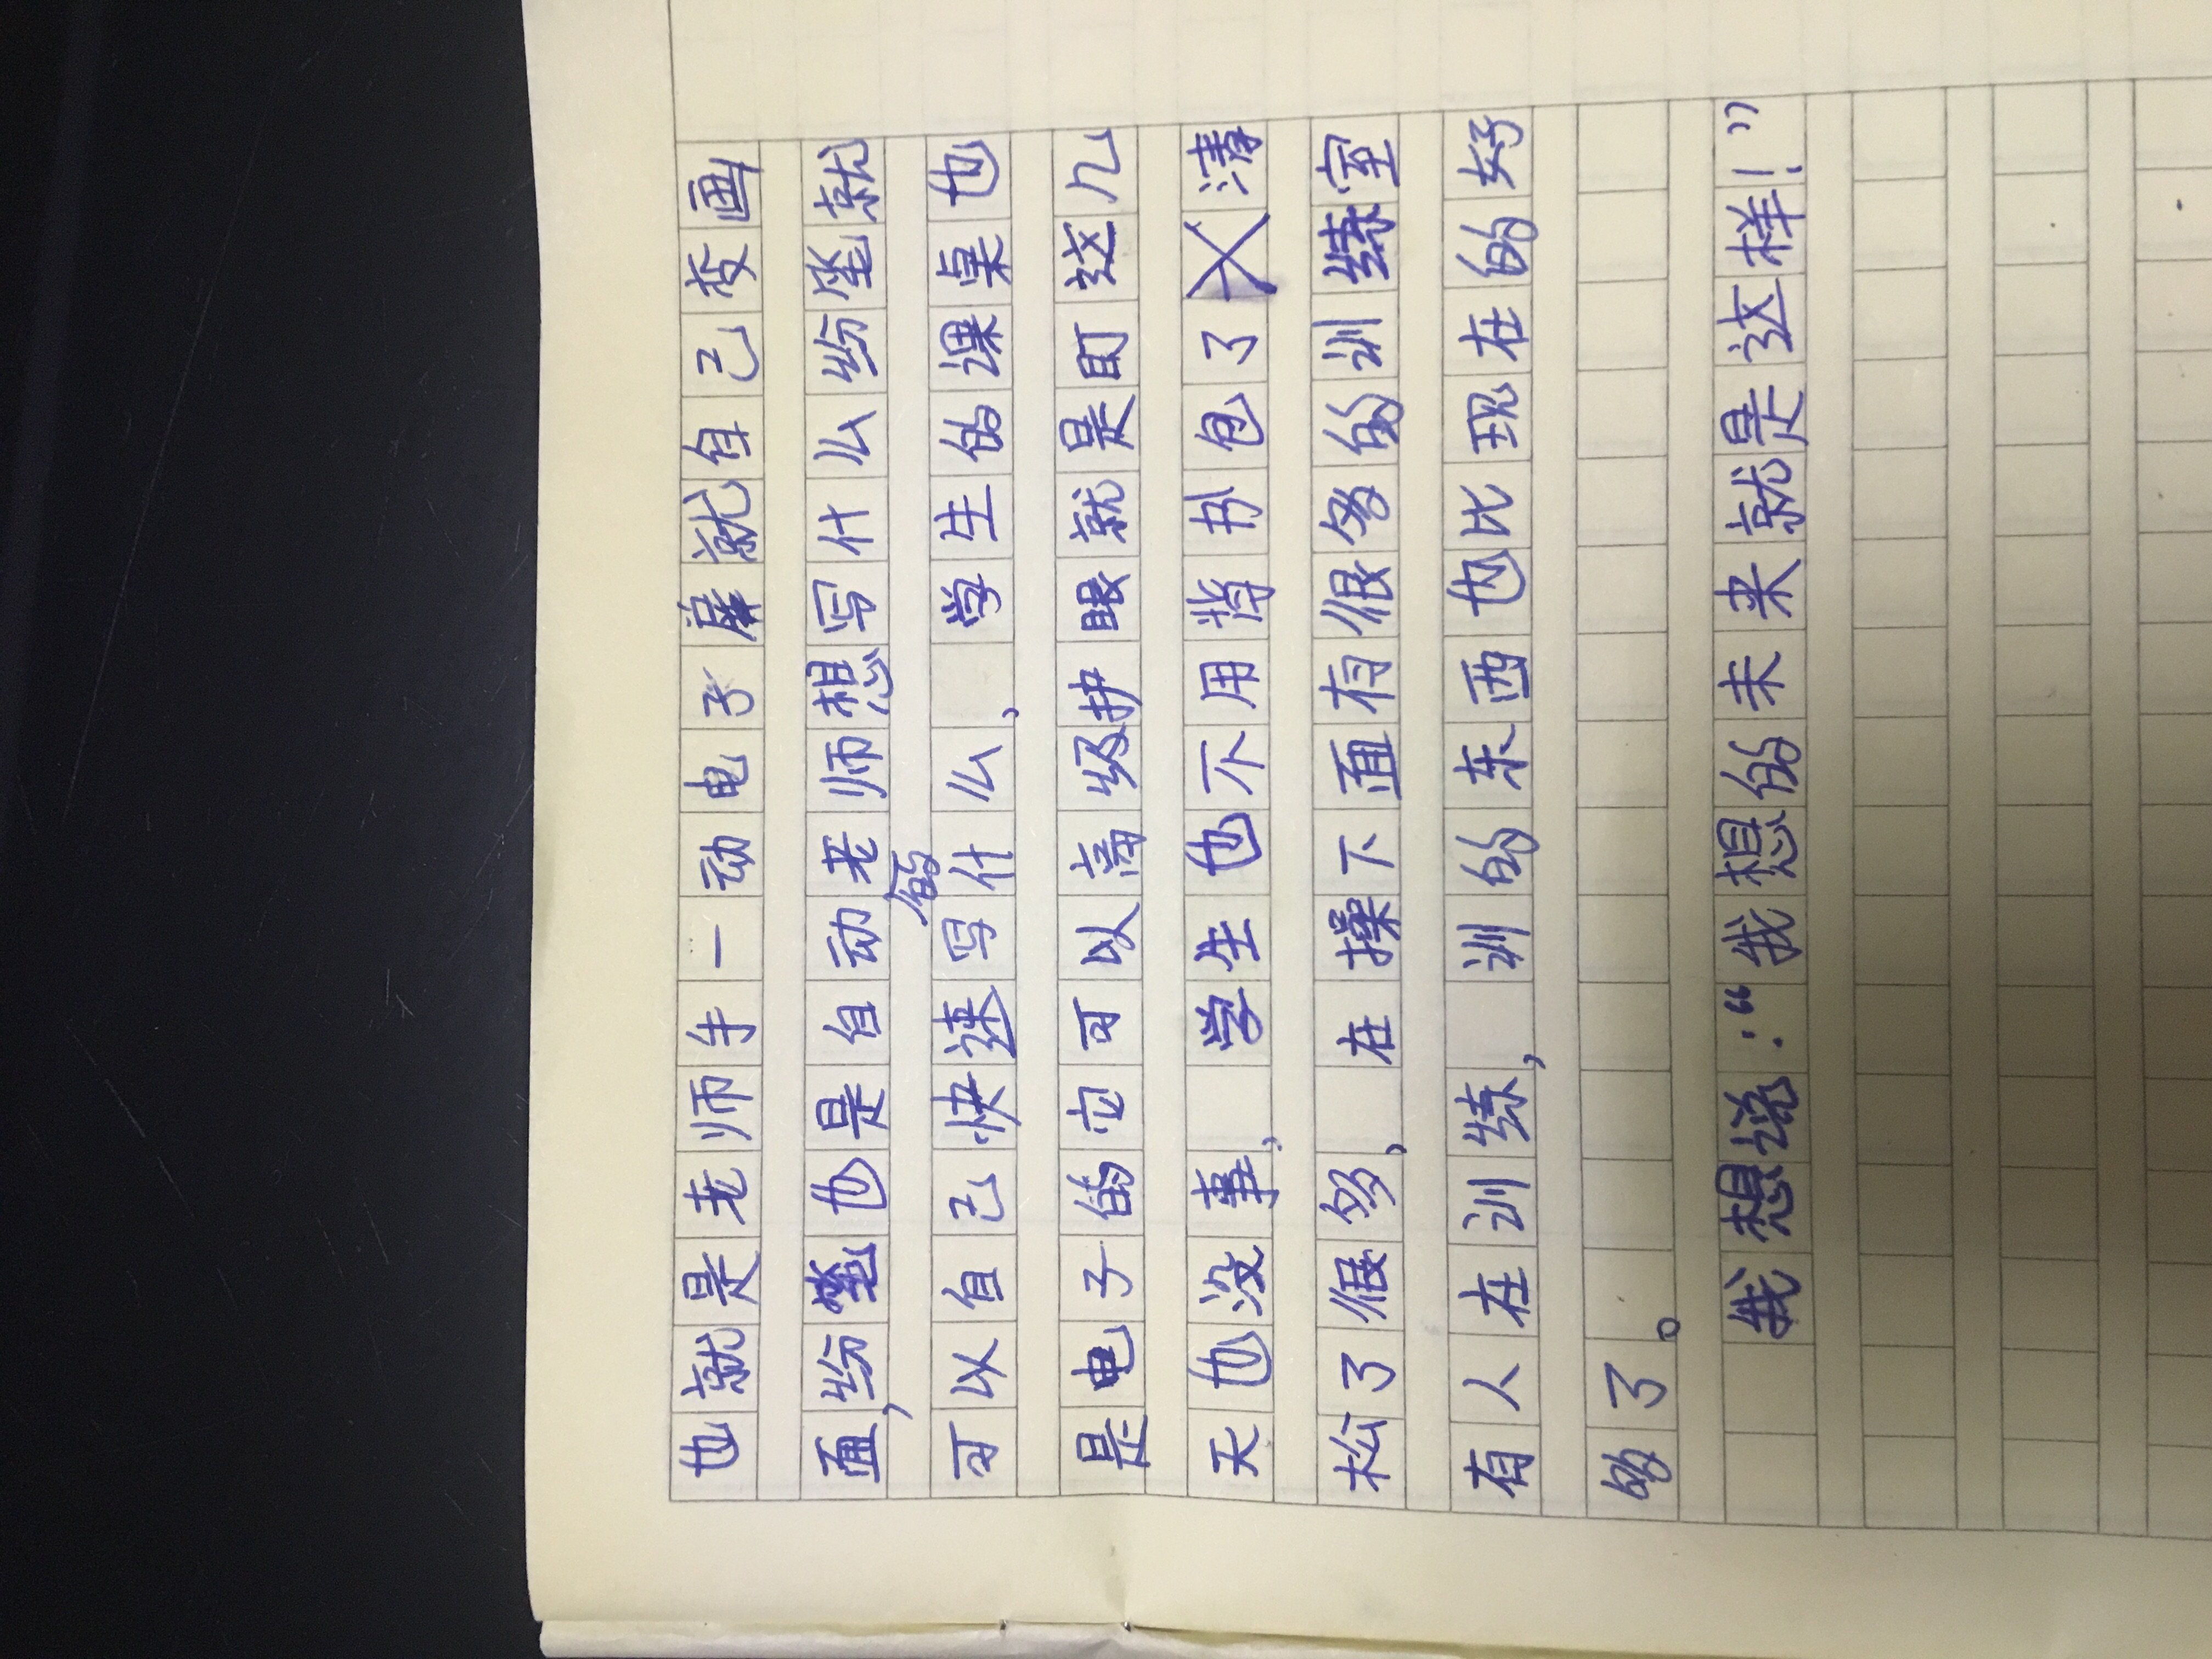 也就是老师手一动电子屏就自己变画
面,纷笔也是自动老师想写什么纷笔就
可以自己快速写什么,学生的课桌也
是电子的它可以高级护眼就是盯这几
天也没事,学生也不用背书包了清
松了很多,在操下面有很多的训练室
有人在训练,训的东西也比现在的好
多了。
我想说:“我想的未来就是这样!”